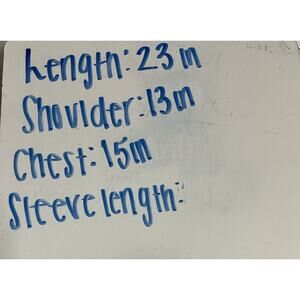 Length: 23 in
Shoulder: 13in
Chest: 15in
Sleeve length: